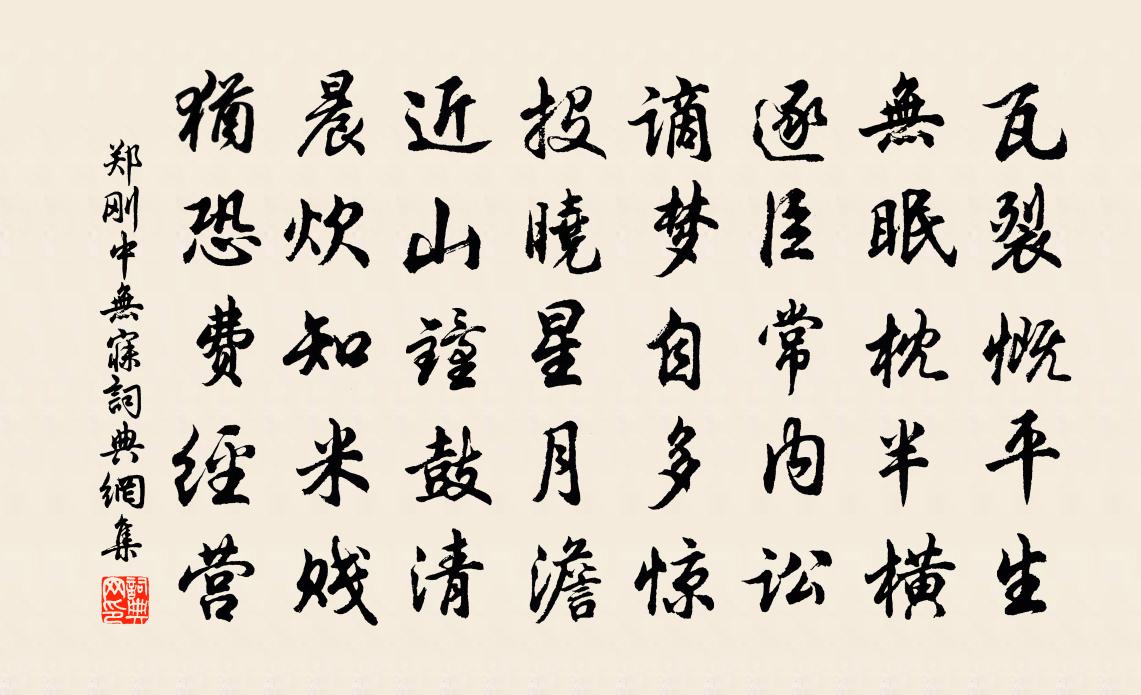 瓦裂慨平生
無眠枕半横
逐臣常内讼
谪梦自多惊
投曉星月澹
近山鐘鼓清
晨炊知米贱
猶恐费經营
郑刚中無寐詞典網集
詞典网印